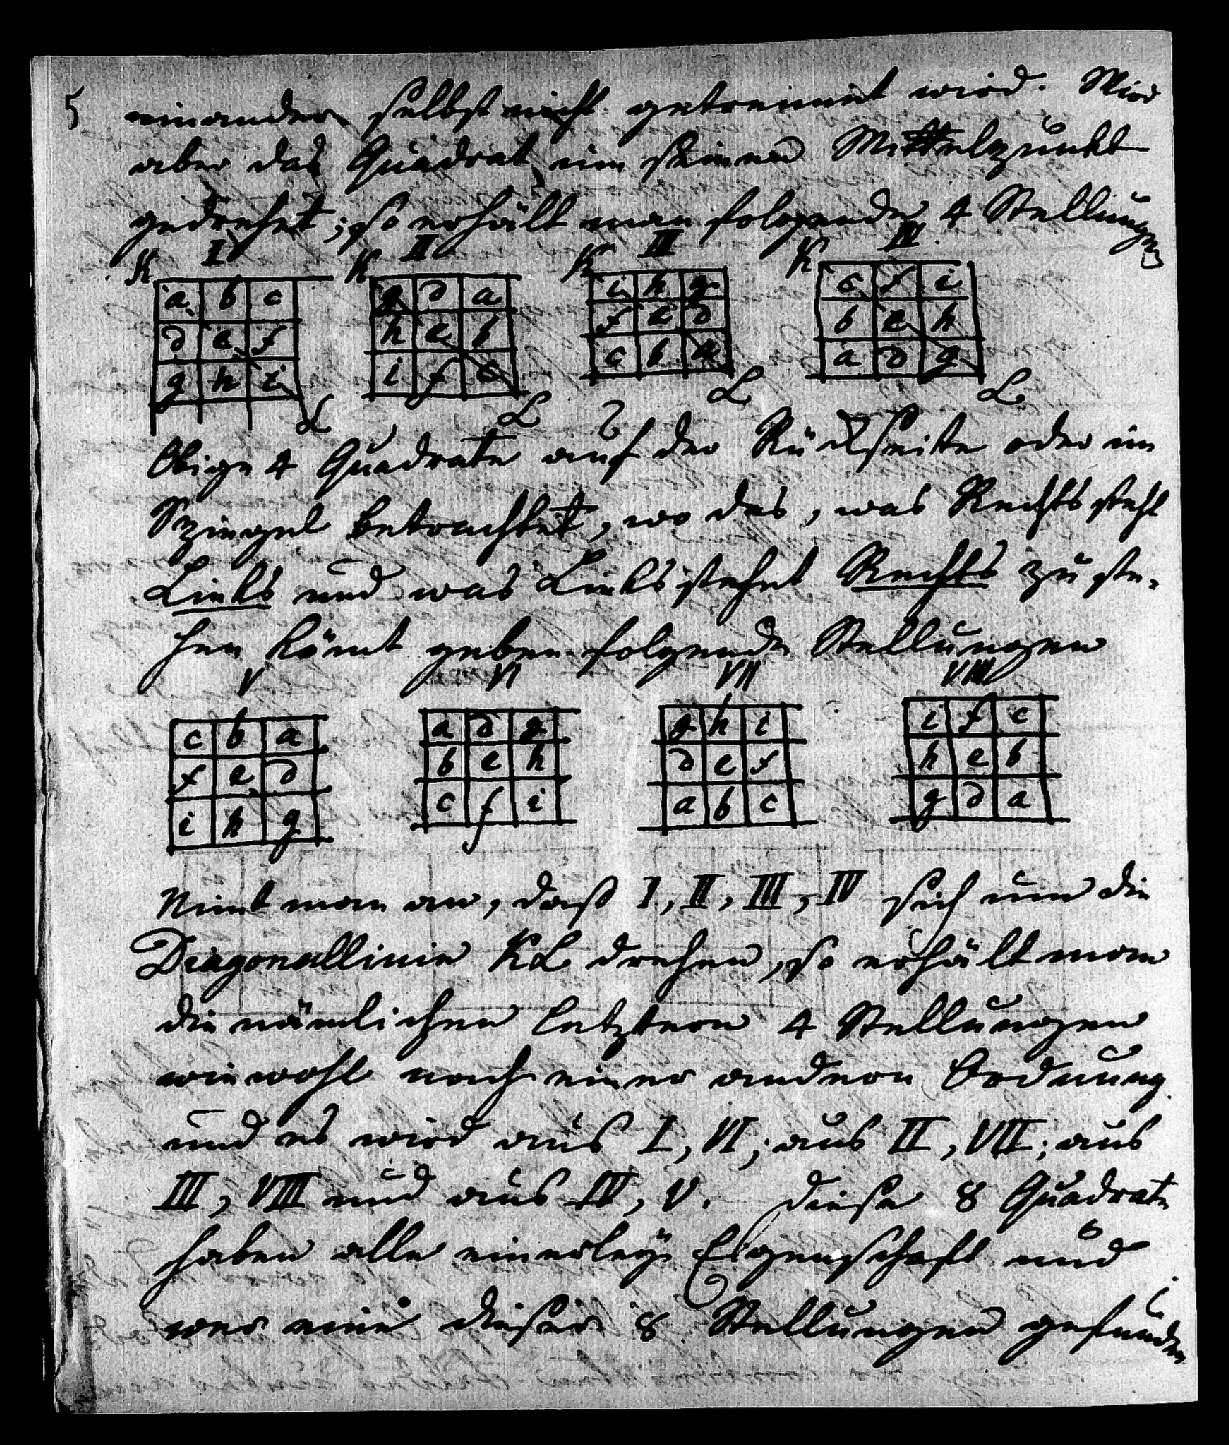 5
einander selbst nicht getrennt wird. Wird
aber das Quadrat um seinen Mittelpunkt
gedrehet; so erhält man folgende 4 Stellungen
K I K II K III K IV
a b c
d e f
g h i
L
g d a
h e b
i f c
L
i h g
f e d
c b a
L
c f i
b e h
a d g
L
Obige 4 Quadrate auf der Rückseite oder im
Spiegel betrachtet, wo das, was Rechts steht
Links und was Links stehet Rechts zu ste-
hen kömt geben folgende Stellungen
V VI VII VIII
c b a
f e d
i h g
a d g
b e h
c f i
g h i
d e f
a b c
i f c
h e b
g d a
Nimt man an, daß I, II, III, IV sich um die
Diagonallinie KL drehen, so erhält man
die nämlichen letztern 4 Stellungen
wiewohl nach einer andern Ordnung
und es wird aus I, VI; aus II, VII; aus
III, VIII und aus IV, V. Diese 8 Quadrate
haben alle einerley Eigenschaft und
wer eine dieser 8 Stellungen gefunden